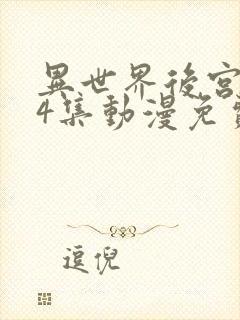 異世界後宮
4集動漫免
逗倪